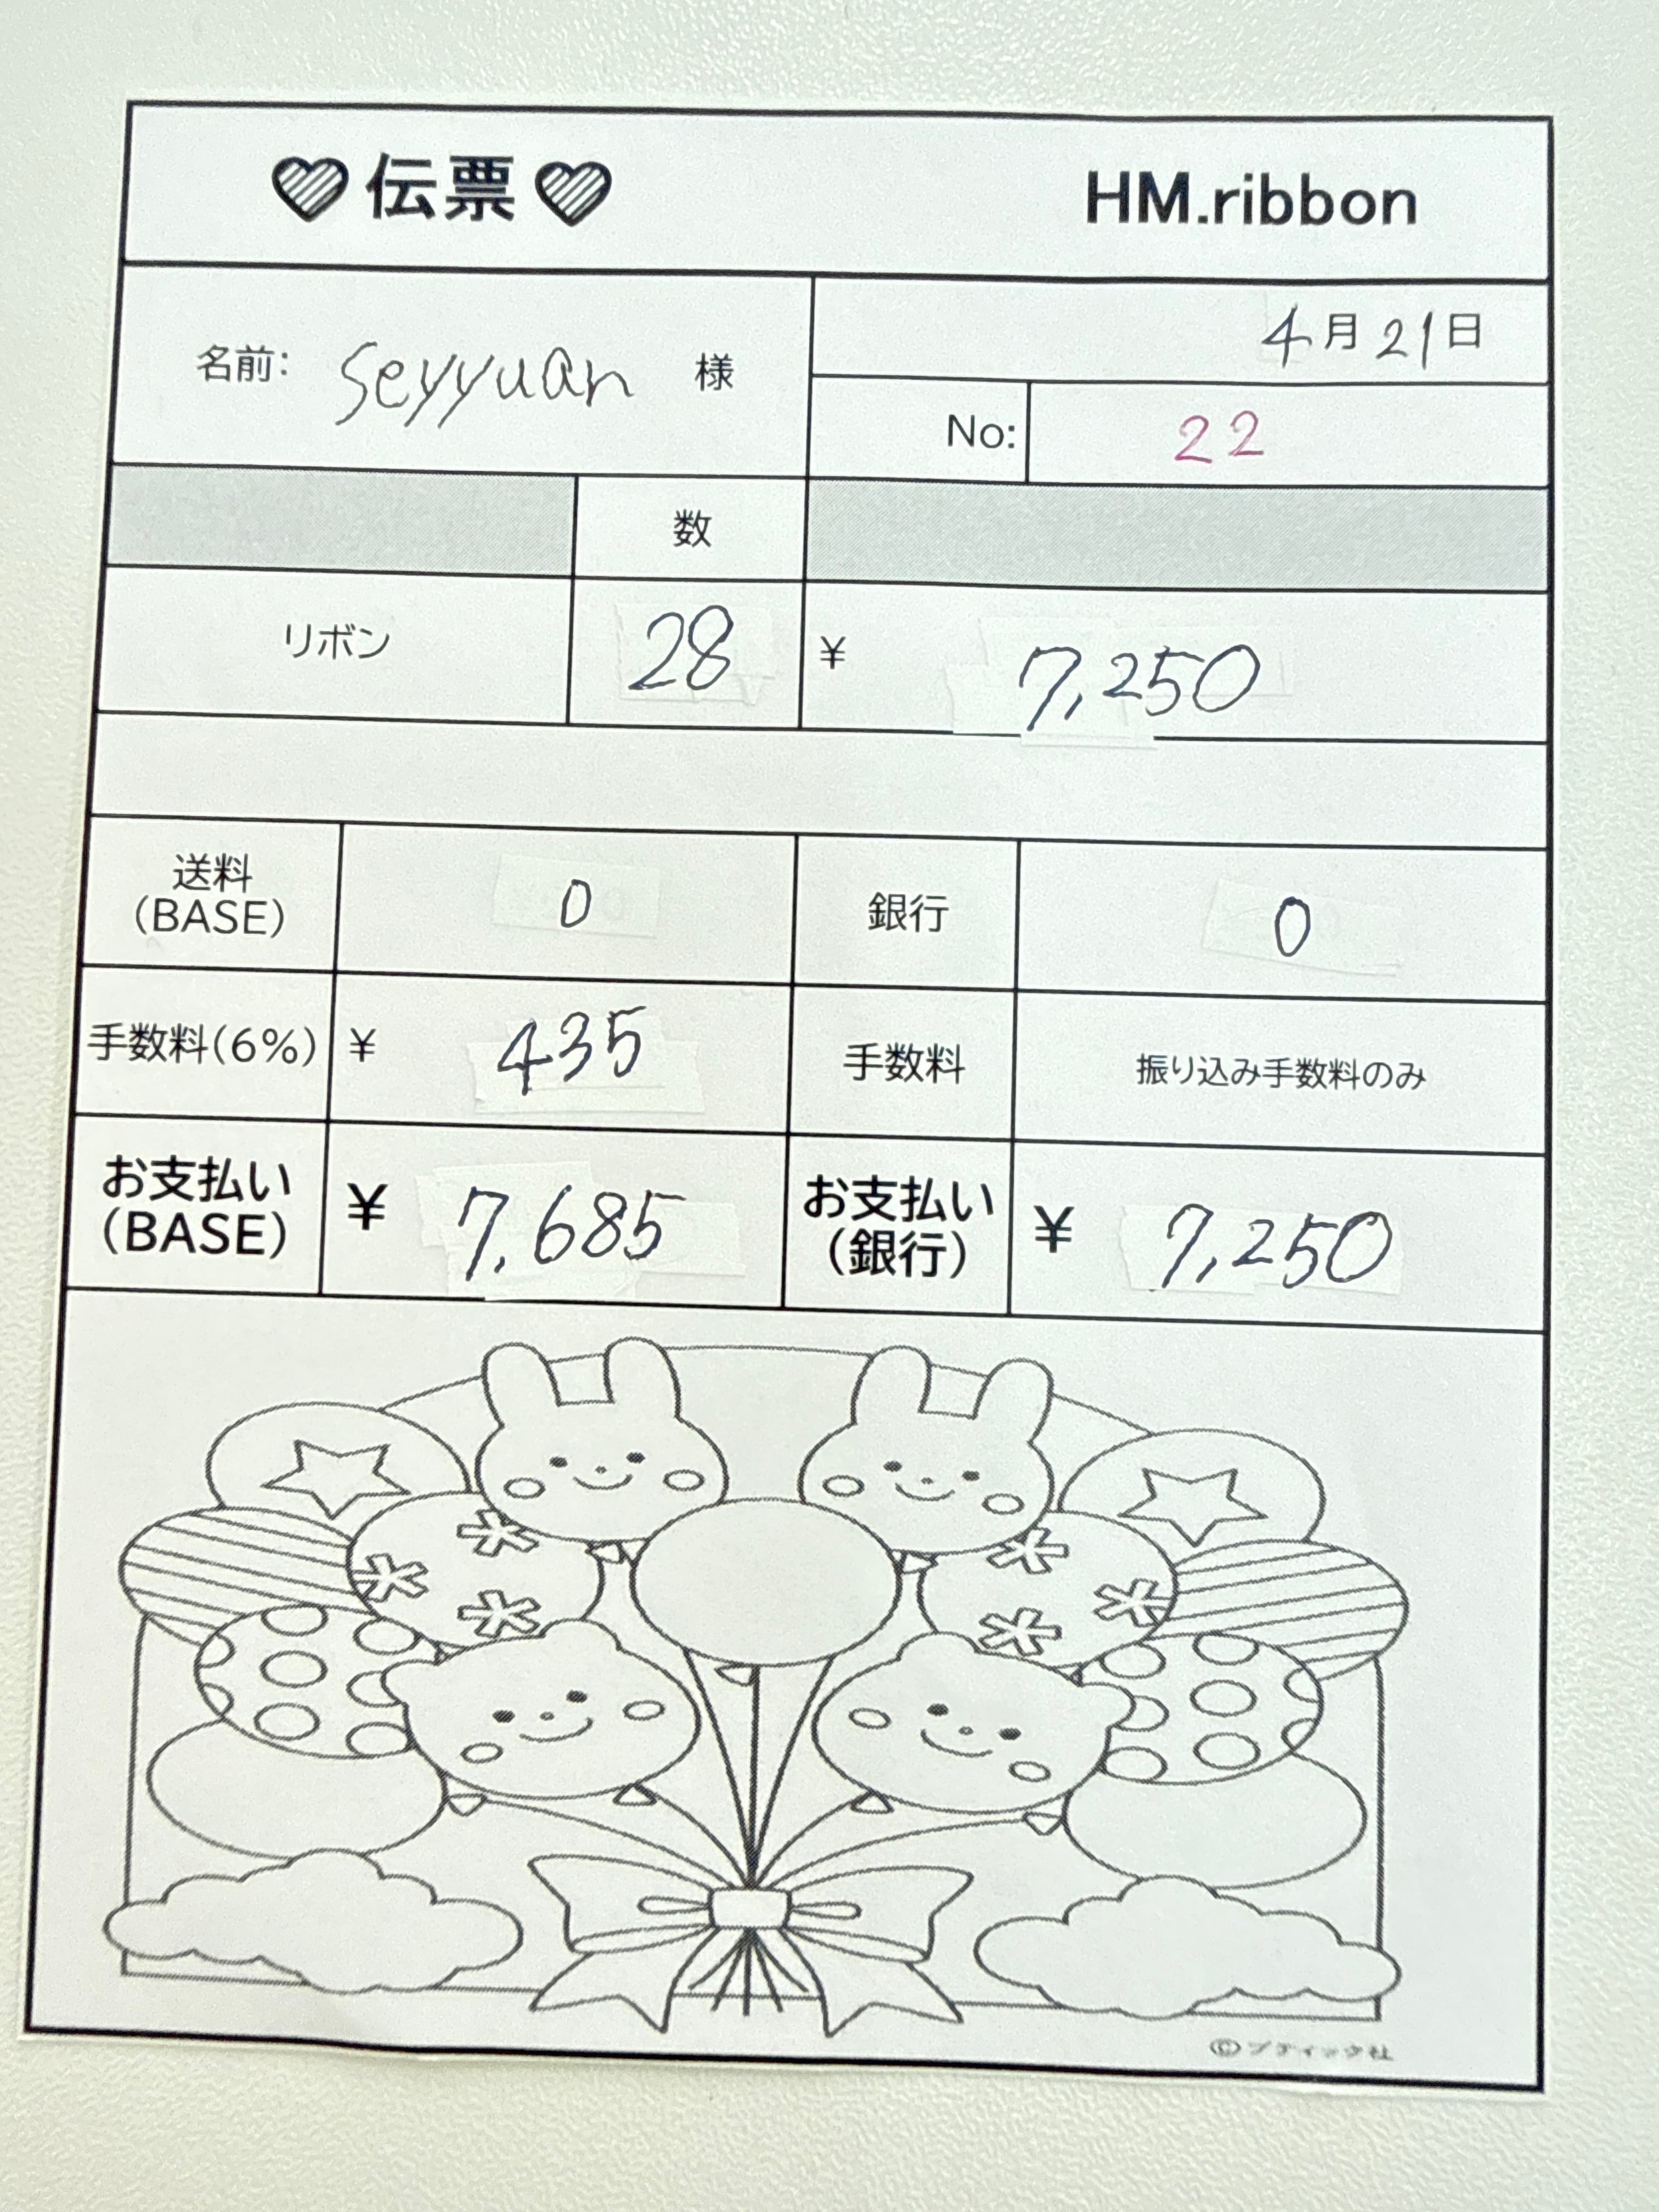 ♡伝票♡ HM.ribbon
名前: seyyuan 様
4月21日
No: 22
数
リボン 28 ¥ 7,250
送料(BASE) 0 銀行 0
手数料(6%) ¥ 435 手数料 振り込み手数料のみ
お支払い(BASE) ¥ 7,685 お支払い(銀行) ¥ 7,250
©ブティック社